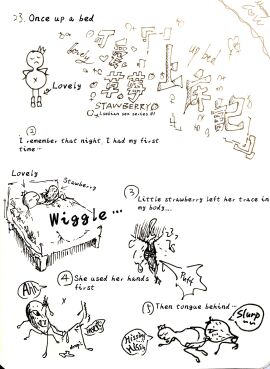 23. Once up a bed
Lovely
可愛
草莓
上床記
up bed
STAWBERRY
Lesbian sex series #1
Lovely
②
I remember that night, I had my first
time…
Lovely
Stawberry
Wiggle...
③
Little strawberry left her trace in
my body...
Puff
④ She used her hands
first
Ahh
⑤ Then tongue behind…
Slurp